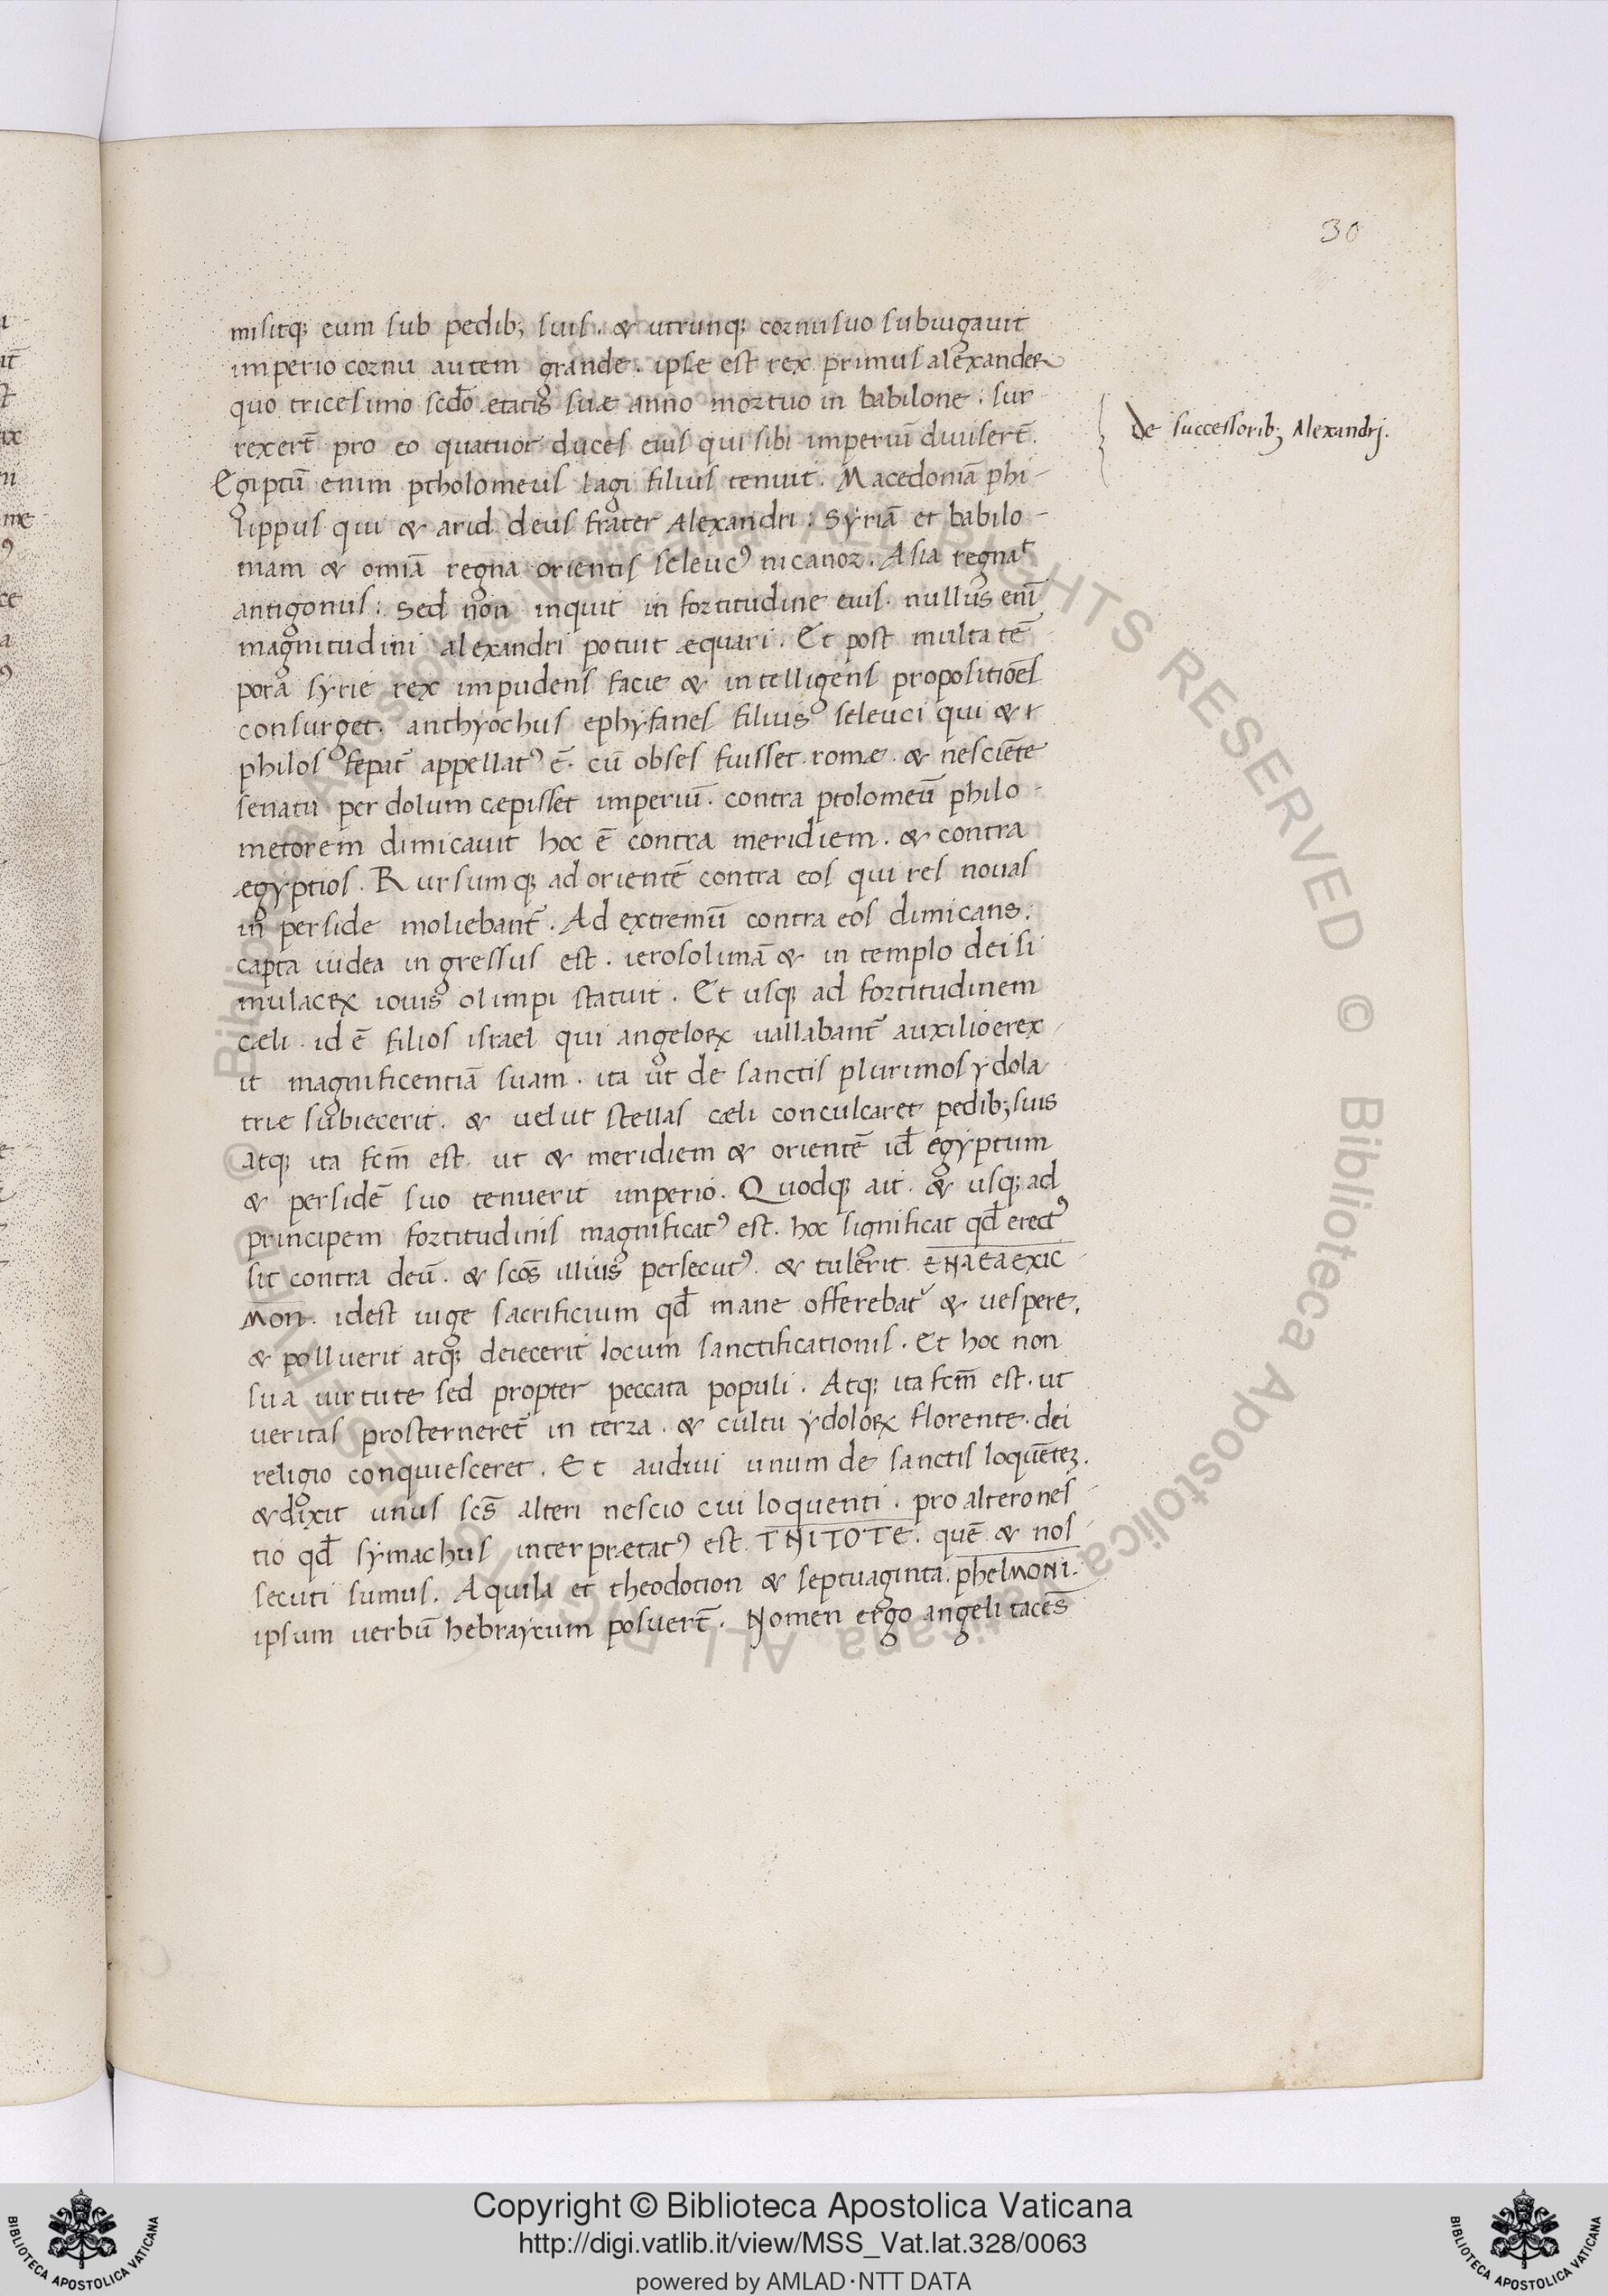 30
misitq; eum sub pedib; suis. & utrunq; cornu suo subiugauit
imperio cornu autem grande. ipse est rex primus alexander
quo tricesimo scdo etatis suæ anno mortuo in babilone. sur
rexert̄ pro eo quatuor duces eius qui sibi imperiū diuisert̄.
de successorib; Alexandrj.
Egiptū enim ptholomeus lagi filius tenuit. Macedoniā phi-
lippus qui & arid deus frater Alexandri. Syriā et babilo-
niam & omiā regna orientis seleuc9 nicanor. Asia regnat
antigonus: Sed non inquit in fortitudine eius. nullus enī
magnitudini alexandri potuit æquari. Et post multa tē
pora syrie rex impudens facie & intelligens propositiōes
consurget. anthyochus ephyfanes filius seleuci qui & r
philos fepat̄ appellat9 ē. cū obses fuisset romæ. & nesciēte
senatu per dolum cæpisset imperiū. contra ptolomeū philo-
metorem dimicauit hoc ē contra meridiem. & contra
ægyptios. Rursumq; ad orientē contra eos qui res nouas
in perside moliebant̄. Ad extremū contra eos dimicans.
capta iudea ingressus est. ierosolimā & in templo dei si
mulacrꝝ iouis olimpi statuit. Et usq; ad fortitudinem
cæli. id ē filios israel qui angeloꝝ uallabant̄ auxilio erex-
it magnificentiā suam. ita ut de sanctis plurimos ydola-
triæ subiecerit. & uelut stellas cæli conculcaret pedib; suis
atq; ita fcm̄ est. ut & meridiem & orientē id̄ egyptum
& persidē suo tenuerit imperio. Quodq; ait. & usq; ad
principem fortitudinis magnificat9 est. hoc significat qd̄ erect9
sit contra deū. & scōs illius persecut9. & tulerit ENAEAEXIC
MON. idest iuge sacrificium qd̄ mane offerebat̄ & uespere.
& polluerit atq; deiecerit locum sanctificationis. Et hoc non
sua uirtute sed propter peccata populi. Atq; ita fcm̄ est. ut
ueritas prosterneret̄ in terra. & cultu ydoloꝝ florente. dei
religio conquiesceret. Et audiui unum de sanctis loquētez.
& dixit unus scs̄ alteri nescio cui loquenti. pro altero nes-
tio qd̄ symachus interpretat9 est. TNITOTE. quē & nos
secuti sumus. Aquila et theodotion & septuaginta. phelMONI.
ipsum uerbū hebraycum posuert̄. Nomen ergo angeli tacēs
Copyright © Biblioteca Apostolica Vaticana
http://digi.vatlib.it/view/MSS_Vat.lat.328/0063
powered by AMLAD·NTT DATA